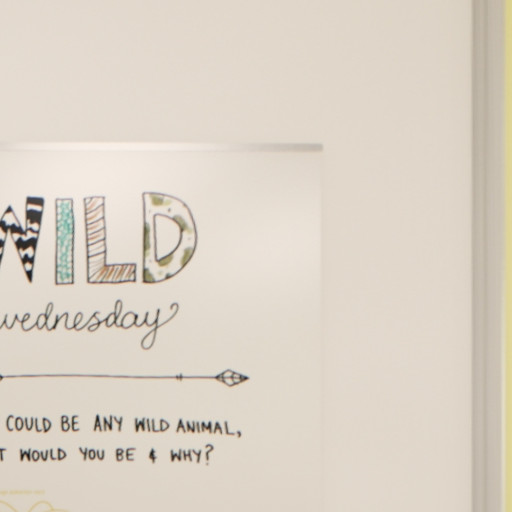 WILD
wednesday
COULD BE ANY WILD ANIMAL,
T WOULD YOU BE & WHY?